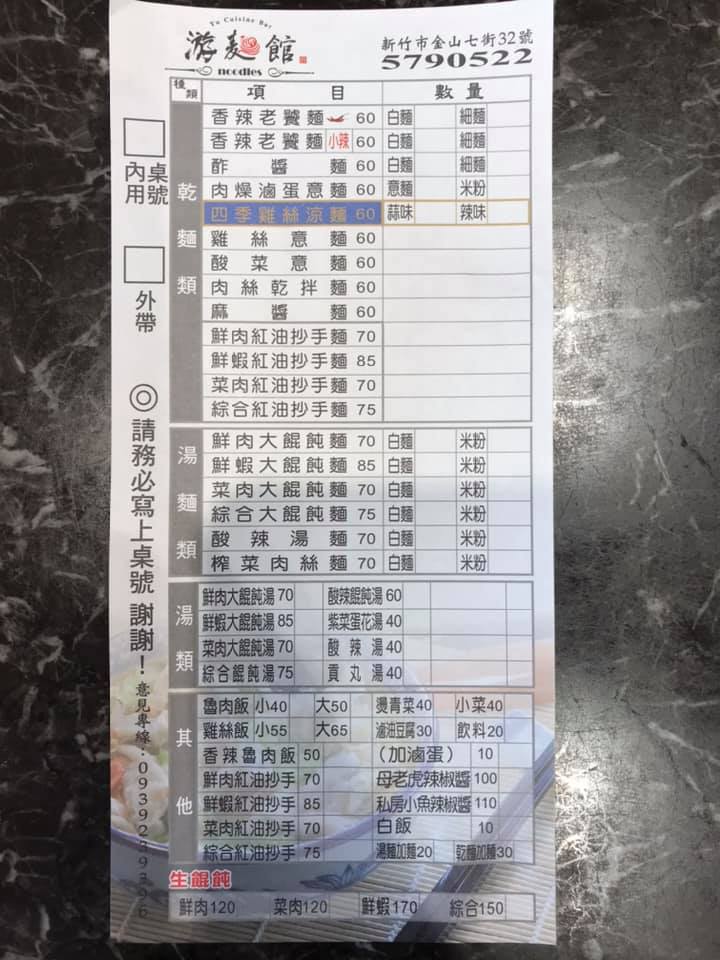 Yu Cuisine Bar
游麵館
noodles
新竹市金山七街32號
5790522
種類 項目 數量
乾麵類
香辣老饕麵 60 白麵 細麵
香辣老饕麵 小辣 60 白麵 細麵
酢醬麵 60 白麵 細麵
肉燥滷蛋意麵 60 意麵 米粉
四季雞絲涼麵 60 蒜味 辣味
雞絲意麵 60
酸菜意麵 60
肉絲乾拌麵 60
麻醬麵 60
鮮肉紅油抄手麵 70
鮮蝦紅油抄手麵 85
菜肉紅油抄手麵 70
綜合紅油抄手麵 75
湯麵類
鮮肉大餛飩麵 70 白麵 米粉
鮮蝦大餛飩麵 85 白麵 米粉
菜肉大餛飩麵 70 白麵 米粉
綜合大餛飩麵 75 白麵 米粉
酸辣湯麵 70 白麵 米粉
榨菜肉絲麵 70 白麵 米粉
湯類
鮮肉大餛飩湯 70 酸辣餛飩湯 60
鮮蝦大餛飩湯 85 紫菜蛋花湯 40
菜肉大餛飩湯 70 酸辣湯 40
綜合餛飩湯 75 貢丸湯 40
其他
魯肉飯 小40 大50 燙青菜40 小菜40
雞絲飯 小55 大65 滷油豆腐30 飲料20
香辣魯肉飯 50 (加滷蛋) 10
鮮肉紅油抄手 70 母老虎辣椒醬 100
鮮蝦紅油抄手 85 私房小魚辣椒醬 110
菜肉紅油抄手 70 白飯 10
綜合紅油抄手 75 湯麵加麵20 乾麵加麵30
生餛飩
鮮肉120 菜肉120 鮮蝦170 綜合150
桌號
內用
外帶
◎請務必寫上桌號 謝謝！
意見專線：0939239396